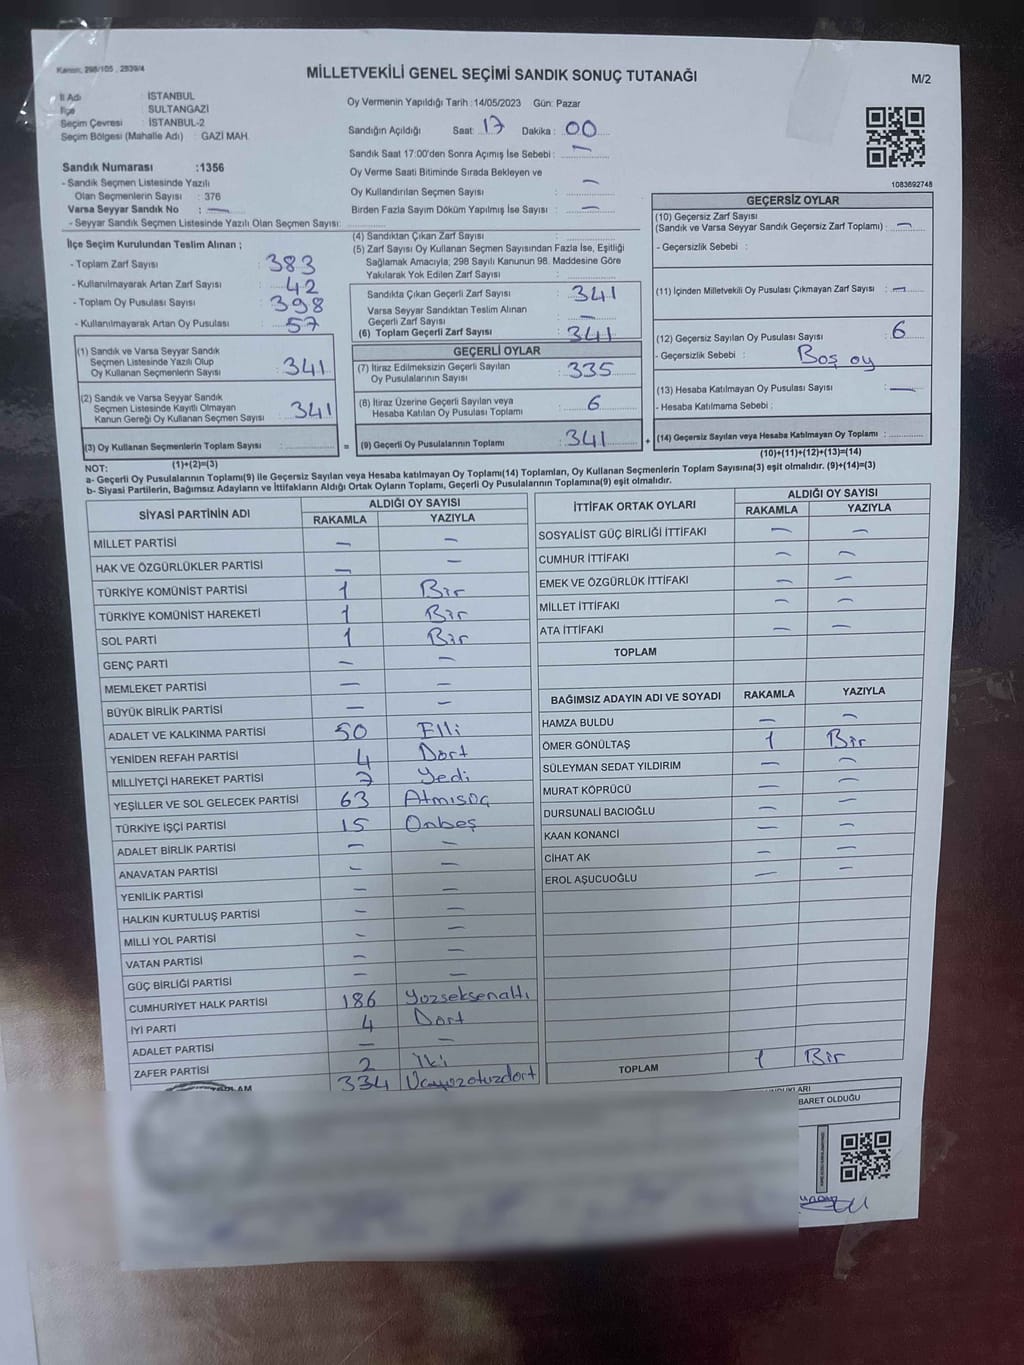 Kanun: 298/105 , 2839/4
MİLLETVEKİLİ GENEL SEÇİMİ SANDIK SONUÇ TUTANAĞI
M/2
İl Adı : İSTANBUL
İlçe : SULTANGAZİ
Seçim Çevresi : İSTANBUL-2
Seçim Bölgesi (Mahalle Adı) : GAZİ MAH.
Oy Vermenin Yapıldığı Tarih :14/05/2023 Gün: Pazar
Sandığın Açıldığı Saat: 17 Dakika: 00
Sandık Saat 17:00'den Sonra Açımış İse Sebebi : –
Oy Verme Saati Bitiminde Sırada Bekleyen ve
Oy Kullandırılan Seçmen Sayısı : –
Birden Fazla Sayım Döküm Yapılmış İse Sayısı : –
1083692748
Sandık Numarası :1356
- Sandık Seçmen Listesinde Yazılı
Olan Seçmenlerin Sayısı : 376
Varsa Seyyar Sandık No : –
- Seyyar Sandık Seçmen Listesinde Yazılı Olan Seçmen Sayısı:
İlçe Seçim Kurulundan Teslim Alınan ;
- Toplam Zarf Sayısı : 383
- Kullanılmayarak Artan Zarf Sayısı : 42
- Toplam Oy Pusulası Sayısı : 398
- Kullanılmayarak Artan Oy Pusulası : 57
(1) Sandık ve Varsa Seyyar Sandık
Seçmen Listesinde Yazılı Olup
Oy Kullanan Seçmenlerin Sayısı 341
(2) Sandık ve Varsa Seyyar Sandık
Seçmen Listesinde Kayıtlı Olmayan
Kanun Gereği Oy Kullanan Seçmen Sayısı 341
(3) Oy Kullanan Seçmenlerin Toplam Sayısı :
(1)+(2)=(3)
(4) Sandıktan Çıkan Zarf Sayısı :
(5) Zarf Sayısı Oy Kullanan Seçmen Sayısından Fazla İse, Eşitliği
Sağlamak Amacıyla; 298 Sayılı Kanunun 98. Maddesine Göre
Yakılarak Yok Edilen Zarf Sayısı :
Sandıkta Çıkan Geçerli Zarf Sayısı : 341
Varsa Seyyar Sandıktan Teslim Alınan
Geçerli Zarf Sayısı : –
(6) Toplam Geçerli Zarf Sayısı : 341
GEÇERLİ OYLAR
(7) İtiraz Edilmeksizin Geçerli Sayılan
Oy Pusulalarının Sayısı : 335
(8) İtiraz Üzerine Geçerli Sayılan veya
Hesaba Katılan Oy Pusulası Toplamı : 6
= (9) Geçerli Oy Pusulalarının Toplamı : 341 +
GEÇERSİZ OYLAR
(10) Geçersiz Zarf Sayısı
(Sandık ve Varsa Seyyar Sandık Geçersiz Zarf Toplamı) : –
- Geçersizlik Sebebi :
(11) İçinden Milletvekili Oy Pusulası Çıkmayan Zarf Sayısı : –
(12) Geçersiz Sayılan Oy Pusulası Sayısı : 6
- Geçersizlik Sebebi : Boş oy
(13) Hesaba Katılmayan Oy Pusulası Sayısı : –
- Hesaba Katılmama Sebebi :
(14) Geçersiz Sayılan veya Hesaba Katılmayan Oy Toplamı :
(10)+(11)+(12)+(13)=(14)
NOT:
a- Geçerli Oy Pusulalarının Toplamı(9) ile Geçersiz Sayılan veya Hesaba katılmayan Oy Toplamı(14) Toplamları, Oy Kullanan Seçmenlerin Toplam Sayısına(3) eşit olmalıdır. (9)+(14)=(3)
b- Siyasi Partilerin, Bağımsız Adayların ve İttifakların Aldığı Ortak Oyların Toplamı, Geçerli Oy Pusulalarının Toplamına(9) eşit olmalıdır.
SİYASİ PARTİNİN ADI ALDIĞI OY SAYISI
RAKAMLA YAZIYLA
MİLLET PARTİSİ – –
HAK VE ÖZGÜRLÜKLER PARTİSİ – –
TÜRKİYE KOMÜNİST PARTİSİ 1 Bir
TÜRKİYE KOMÜNİST HAREKETİ 1 Bir
SOL PARTİ 1 Bir
GENÇ PARTİ – –
MEMLEKET PARTİSİ – –
BÜYÜK BİRLİK PARTİSİ – –
ADALET VE KALKINMA PARTİSİ 50 Elli
YENİDEN REFAH PARTİSİ 4 Dört
MİLLİYETÇİ HAREKET PARTİSİ 7 Yedi
YEŞİLLER VE SOL GELECEK PARTİSİ 63 Atmışüç
TÜRKİYE İŞÇİ PARTİSİ 15 Onbeş
ADALET BİRLİK PARTİSİ – –
ANAVATAN PARTİSİ – –
YENİLİK PARTİSİ – –
HALKIN KURTULUŞ PARTİSİ – –
MİLLİ YOL PARTİSİ – –
VATAN PARTİSİ – –
GÜÇ BİRLİĞİ PARTİSİ – –
CUMHURİYET HALK PARTİSİ 186 Yüzseksenaltı
İYİ PARTİ 4 Dört
ADALET PARTİSİ – –
ZAFER PARTİSİ 2 İki
334 Üçyüzotuzdört
İTTİFAK ORTAK OYLARI ALDIĞI OY SAYISI
RAKAMLA YAZIYLA
SOSYALİST GÜÇ BİRLİĞİ İTTİFAKI – –
CUMHUR İTTİFAKI – –
EMEK VE ÖZGÜRLÜK İTTİFAKI – –
MİLLET İTTİFAKI – –
ATA İTTİFAKI – –
TOPLAM
BAĞIMSIZ ADAYIN ADI VE SOYADI RAKAMLA YAZIYLA
HAMZA BULDU – –
ÖMER GÖNÜLTAŞ 1 Bir
SÜLEYMAN SEDAT YILDIRIM – –
MURAT KÖPRÜCÜ – –
DURSUNALİ BACIOĞLU – –
KAAN KONANCİ – –
CİHAT AK – –
EROL AŞUCUOĞLU – –
TOPLAM 1 Bir
BARET OLDUĞU